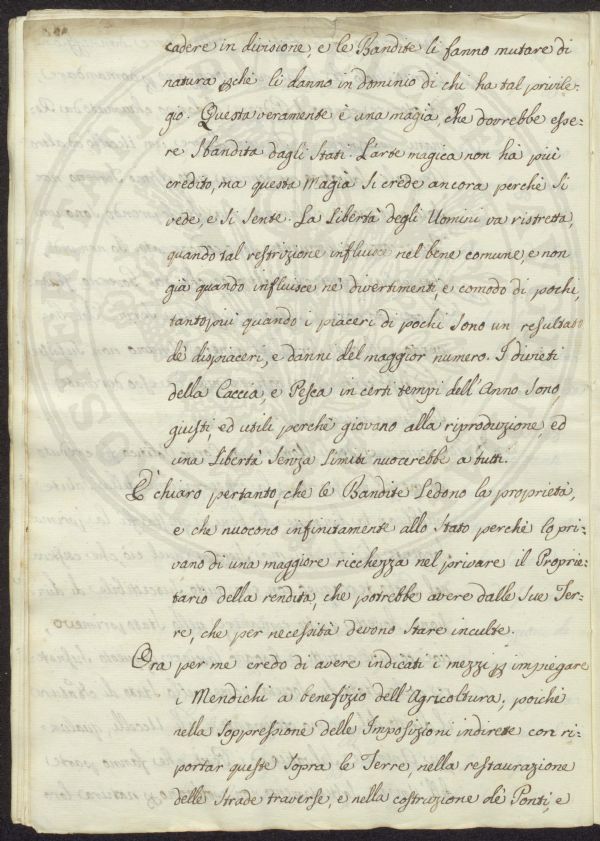 cadere in divisione, e le Bandite li fanno mutare di
natura pchè li danno in dominio di chi ha tal privile:
gio. Questa veramente è una magìa, che dovrebbe esse:
re Sbandita dagli Stati. L'arte magica non hà più
credito, ma questa Magìa Si crede ancora perchè Si
vede, e Si Sente. La Libertà degli Uomini va ristretta,
quando tal restrizione influisce nel bene comune, e non
già quando influisce ne' divertimenti, e comodo di pochi,
tanto più quando i piaceri di pochi Sono un resultato
de' dispiaceri, e danni del maggior numero. I divieti
della Caccia, e Pesca in certi tempi dell'Anno Sono
giusti, ed utili perchè giovano alla riproduzione, ed
una Libertà Senza Limiti nuocerebbe a tutti.
E' chiaro pertanto, che le Bandite Ledono la proprietà,
e che nuocono infinitamente allo Stato perchè lo pri:
vano di una maggiore ricchezza nel privare il Proprie:
tario della rendita, che potrebbe avere dalle Sue Ter:
re, che per necessità devono Stare inculte.
Ora per me credo di avere indicati i mezzi p impiegare
i Mendichi a benefizio dell'Agricoltura; poichè
nella Soppressione delle Imposizioni indirette con ri:
portar queste Sopra le Terre, nella restaurazione
delle Strade traverse, e nella costruzione de' Ponti, e